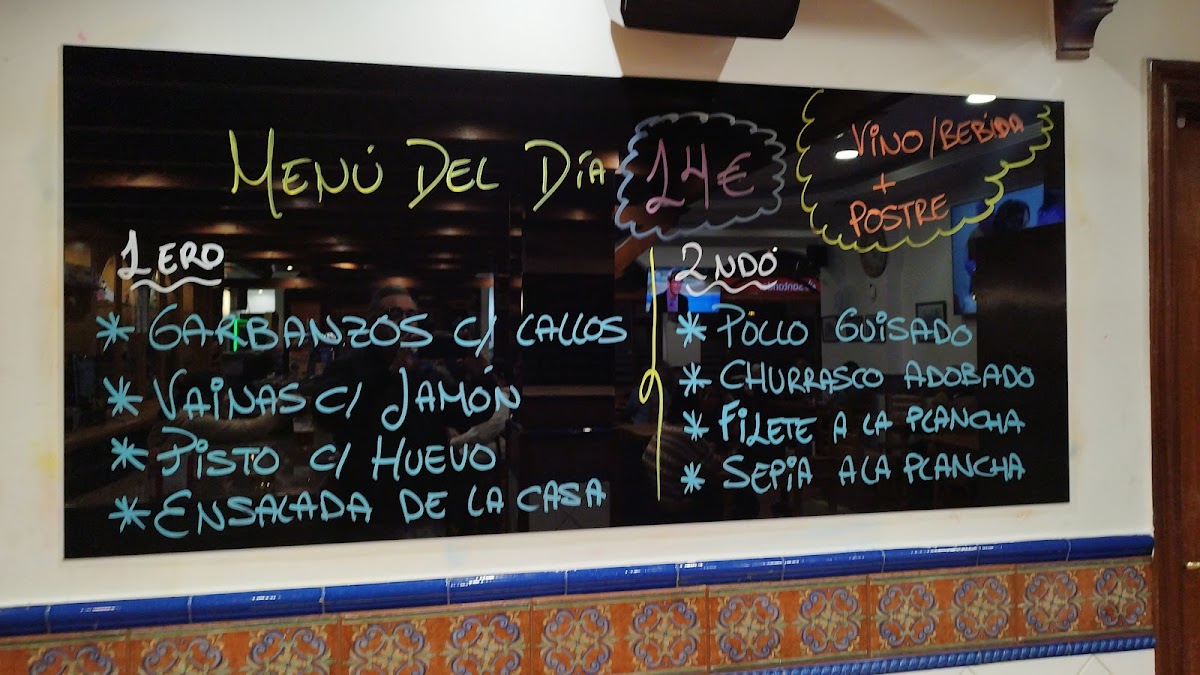 MENÚ DEL DÍA 14€
VINO/BEBIDA
+
POSTRE
1ERO
* GARBANZOS C/ CALLOS
* VAINAS C/ JAMÓN
* PISTO C/ HUEVO
* ENSALADA DE LA CASA
2NDO
* POLLO GUISADO
* CHURRASCO ADOBADO
* FILETE A LA PLANCHA
* SEPIA A LA PLANCHA